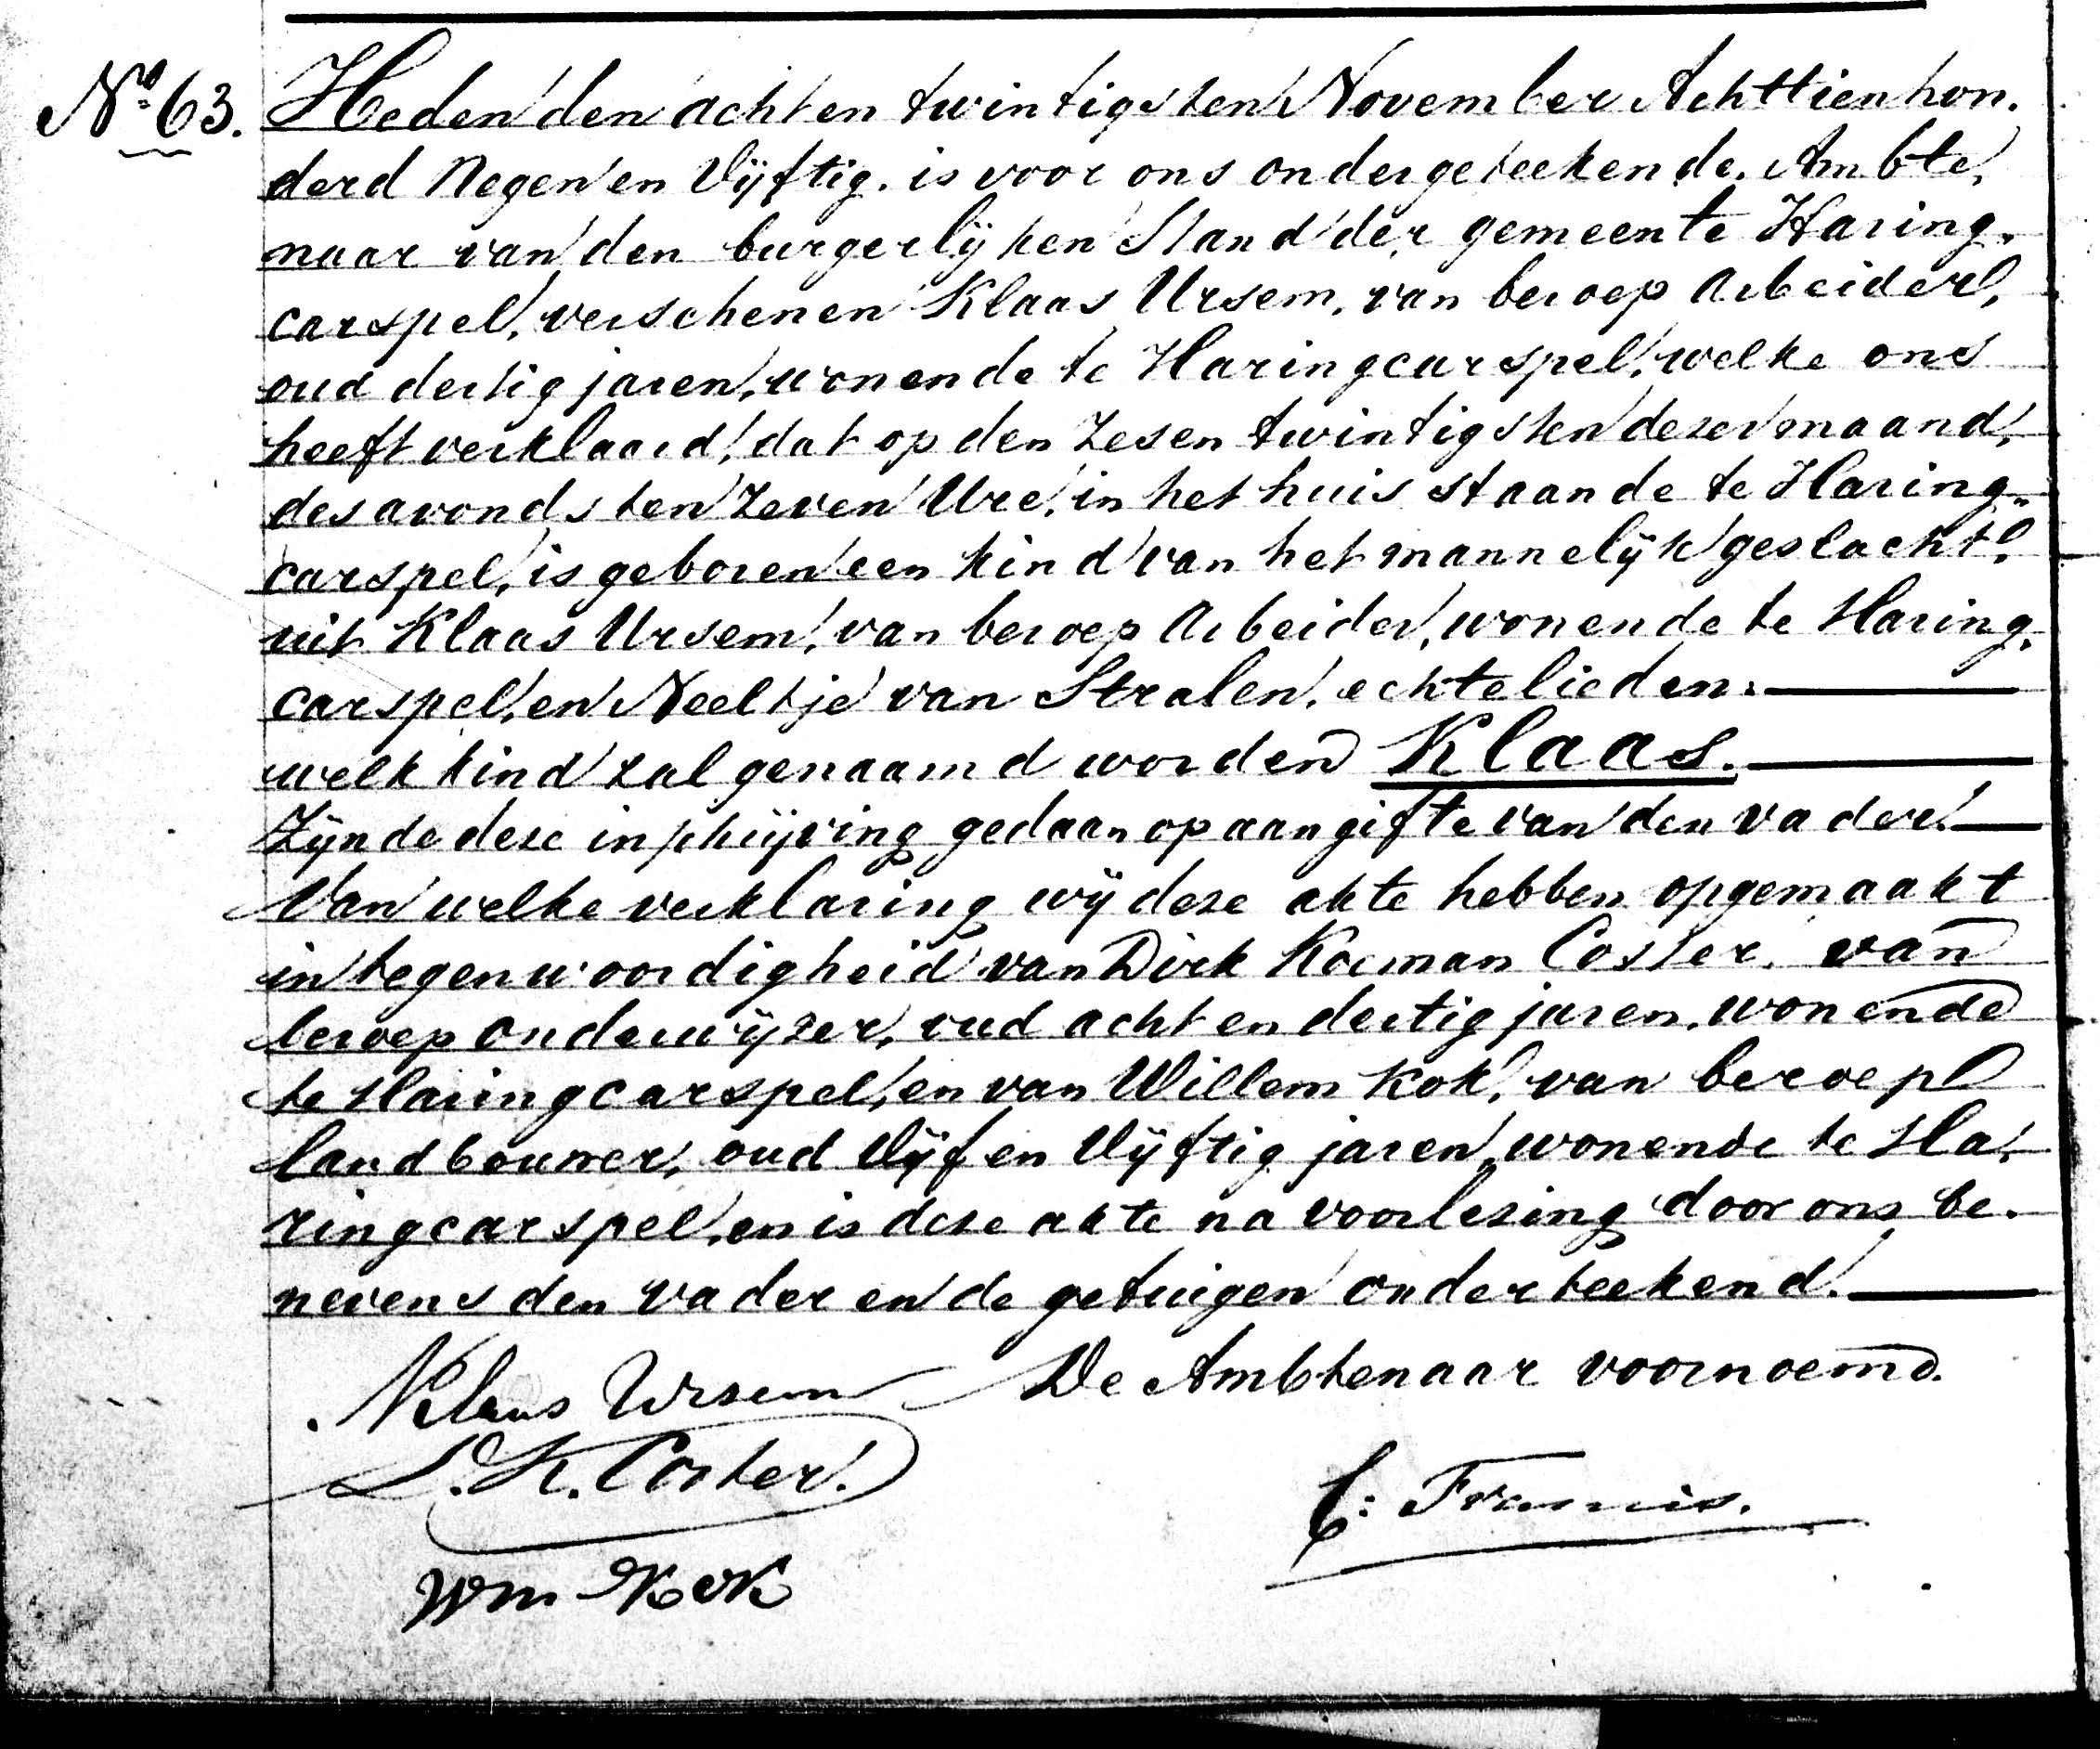 No. 63. Heden den acht en twintigsten November Achttienhon.
derd Negen en Vijftig. is voor ons ondergeteekende. Ambte,
naar van den burgerlijken Stand der gemeente Haring,
carspel, verschenen Klaas Ursem, van beroep Arbeider,
oud dertig jaren, wonende te Haringcarspel, welke ons
heeft verklaard, dat op den Zes en twintigsten dezer maand,
des avonds ten Zeven Ure, in het huis staande te Haring,
carspel, is geboren een kind van het mannelijk geslacht,
uit Klaas Ursem, van beroep Arbeider, wonende te Haring,
carspel, en Neeltje van Stralen, echtelieden.
welk kind zal genaamd worden Klaas.
Zijnde deze inschrijving gedaan op aangifte van den vader.
Van welke verklaring wij deze akte hebben opgemaakt
in tegenwoordigheid van Dirk Koeman Coster, van
beroep onderwijzer, oud acht en dertig jaren, wonende
te Haringcarspel, en van Willem Kok, van beroep
landbouwer, oud Vijf en Vijftig jaren, wonende te Ha,
ringcarspel, en is deze akte na voorlezing door ons be.
nevens den vader en de getuigen onderteekend.
Klaas Ursem De Ambtenaar voornoemd.
D. K. Coster.
C: Francis.
Wm Kok